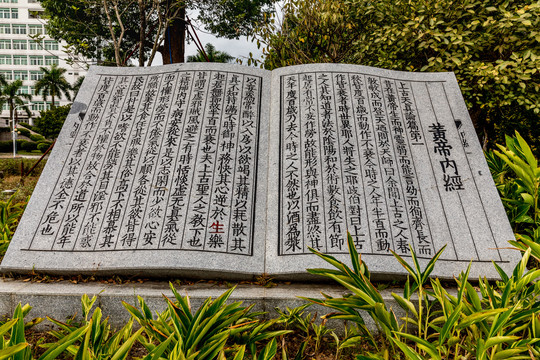 黃帝內經
上古天真論篇第一
昔在黃帝生而神靈弱而能言幼而徇齊長而
敦敏成而登天迺問於天師曰余聞上古之人春
秋皆度百歲而動作不衰今時之人年半百而動
作皆衰者時世異耶人將失之耶岐伯對曰上古
之人其知道者法於陰陽和於術數食飲有節
起居有常不妄作勞故能形與神俱而盡終其
天年度百歲乃去今時之人不然也以酒為漿
以妄為常醉以入房以欲竭其精以耗散其
真不知持滿不時御神務快其心逆於生樂
起居無節故半百而衰也夫上古聖人之教下也
皆謂之虛邪賊風避之有時恬惔虛無真氣從
之精神內守病安從來是以志閑而少欲心安
而不懼形勞而不倦氣從以順各從其欲皆得
所願故美其食任其服樂其俗高下不相慕其
民故曰朴是以嗜欲不能勞其目淫邪不能惑
其心愚智賢不肖不懼於物故合於道所以能年
皆度百歲而動作不衰者以其德全
不危也